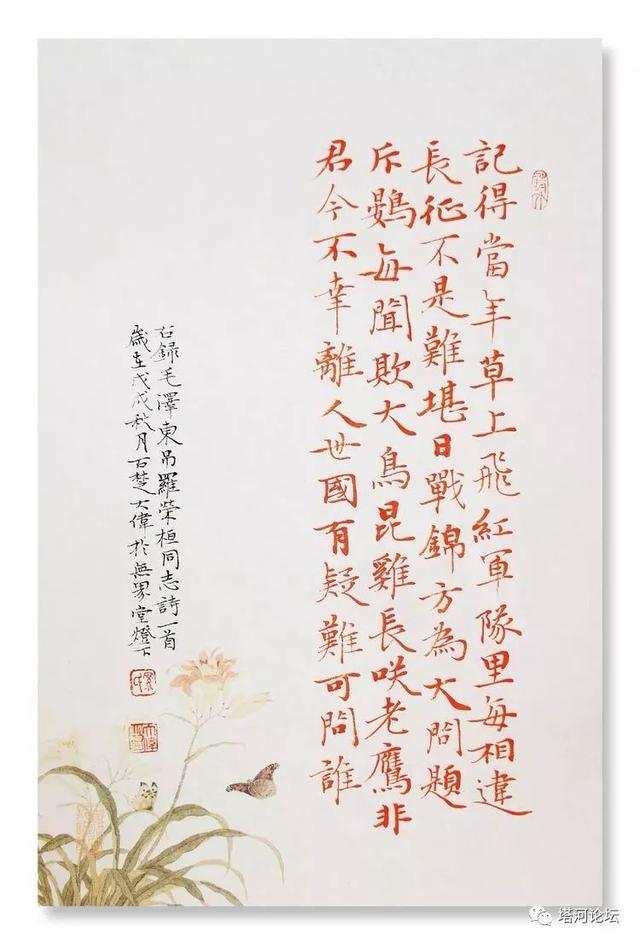 記得當年草上飛紅軍隊里每相違
長征不是難堪日戰錦方為大問題
斥鷃每聞欺大鳥昆雞長咲老鷹非
君今不幸離人世國有疑難可問誰
右錄毛澤東吊羅榮桓同志詩一首
歲在戊戌秋月古楚大偉於無界堂燈下
塔河论坛